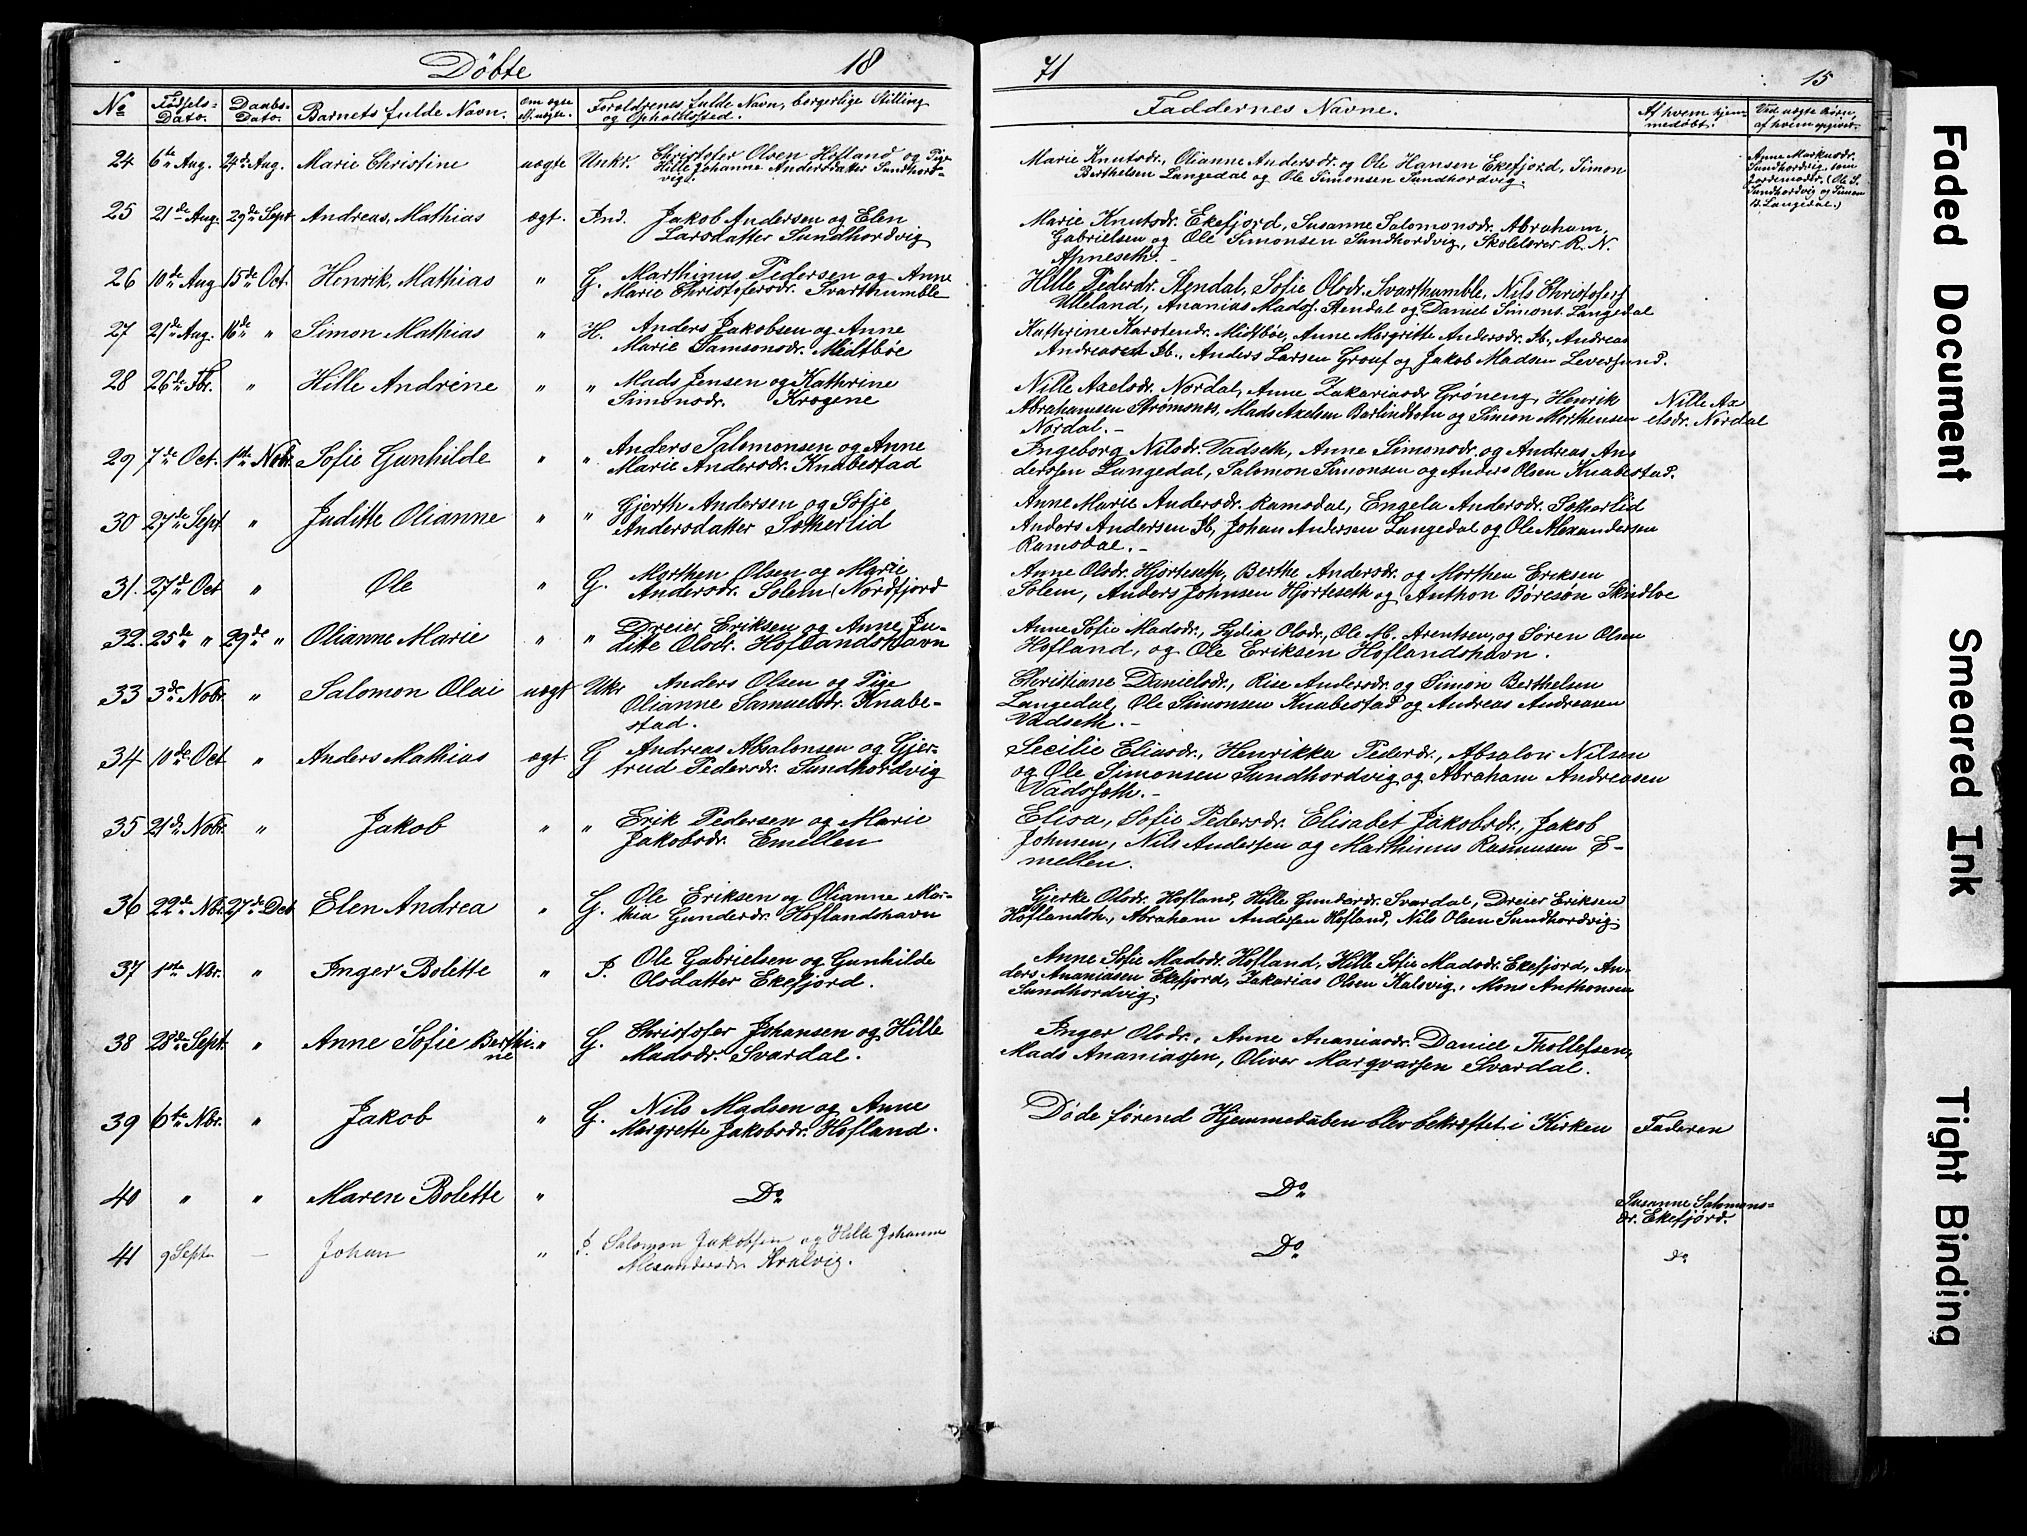 Döbte 18
71 15
No Fødsels-Dato. Daabs-Dato. Barnets fulde Navn. Om ægte el. uægte. Forældrenes fulde Navn, borgerlige Stilling og Opholdssted. Faddernes Navne. Af hvem hjemmedøbt. Ved uægte Børn, af hvem opgivet.
24 6te Aug. 24de Aug. Marie Christine uægte Unkr. Christofer Olsen Hofland og Pige
Hille Johanne Andersdatter Sundhordvig.
Marie Knutsdr., Olianne Andersdr. og Ole Hansen Ekefjord, Simon
Berthelsen Langedal og Ole Simonsen Sundhordvig.
Anne Markusdr.
Sundhordvig, som
Jordemoder. (Ole S.
Sundhordvig og Simon
B. Langedal.)
25 21de Aug. 29de Sept Andreas Mathias ægt. Ind. Jakob Andersen og Elen
Larsdatter Sundhordvig
Marie Knutsdr. Ekefjord, Susanne Salomonsdr. Abraham,
Gabrielsen og Ole Simonsen Sundhordvig, Skolelærer R. N.
Apneseth.
26 10de Aug 15de Oct. Henrik Mathias " G. Marthinus Pedersen og Anne
Marie Christofersdr. Svarthumble
Hille Pedersdr. Aendal, Sofie Olsdr. Svarthumble, Nils Christofers
Ulleland, Ananias Mads. Aendal og Daniel Simons. Langedal
27 21de Aug. 16de " Simon Mathias " H. Anders Jakobsen og Anne
Marie Samsonsdr. Midtbøe
Kathrine Karstendr. Midtbøe, Anne Margritte Andersdr. Ib., Andreas
Andreaset Ib., Anders Larsen Grouf og Jakob Madsen Leversund.
28 26de Fbr. " Hille Andrine " " Mads Jensen og Kathrine
Simonsdr. Krogene
Nille Axelsdr. Nordal, Anne Zakariasdr Grøneng, Henrik
Abrahamsen Strømsnts, Mads Axelsen Barlindbotn og Simon Morthensen
Nordal.
Nille Ax
elsdr. Nordal
29 7de Oct. 1ste Nobr. Sofie Gunhilde " " Anders Salomonsen og Anne
Marie Andersdr. Knabestad
Ingeborg Nilsdr. Vadseth, Anne Simonsdr. og Andreas An-
dersen Langedal, Salomon Simonsen og Anders Olsen Knabestad.
30 27de Sept " Juditte Olianne " " Gjerth Andersen og Sofie
Andersdatter Sotherlid
Anne Marie Andersdr. Ramsdal, Engela Andersdr. Sotherlid
Anders Andersen Ib, Johan Andersen Langedal og Ole Alexandersen
Ramsdal.
31. 27de Oct " Ole " G. Morthen Olsen og Marie
Andersdr. Solem (Nordfjord
Anne Olsdr. Hjorteseth, Berthe Andersdr. og Morthen Eriksen
Solem, Anders Johnsen Hjorteseth og Anthon Børesøn Skindlve
32. 25de " 29de " Olianne Marie " " Dreier Eriksen og Anne Ju-
ditte Olsdr. Hoflandshavn
Anne Sofie Madsdr., Lydia Olsdr., Ole M. Arentsen, og Søren Olsen
Hofland, og Ole Eriksen Hoflandshavn.
33 3de Nobr. " Salomon Olai uægt Ukr Anders Olsen og Pige
Olianne Samuelsdr. Knabe-
stad.
Christiane Danielsdr., Rise Andersdr og Simon Berthelsen
Langedal, Ole Simonsen Knabestad og Andreas Andreasen
Vadseth.
34 10de Oct " Anders Mathias ægt. G Andreas Absalonsen og Gjer-
trud Pedersdr. Sundhordvig
Secilie Eliasdr., Henrikka Pedersdr., Absalon Nilsen
og Ole Simonsen Sundhordvig og Abraham Andreasen
Vadsseth.
35 21de Nobr. " Jakob " " Erik Pedersen og Marie
Jakobsdr. Emellen
Elisa, Sofie Pedersdr. Elisabet Jakobsdr., Jakob
Johnsen, Nils Andersen og Marthinus Rasmusen E-
mellen.
36 22de Nbr. 27de Det Elen Andrea " G. Ole Eriksen og Olianne Mar-
thea Gundersdr. Hoflandshavn
Gjerke Olsdr. Hofland, Hille Gundersdr. Svardal, Dreier Eriksen
Hoflandsh., Abraham Andersen Hofland, Nils Olsen Sundhordvig
37 1ste Nbr. " Inger Bolette " P. Ole Gabrielsen og Gunhilde
Olsdatter Ekefjord.
Anne Sofie Madsdr. Hofland, Hille Sofie Madsdr. Ekefjord, An-
ders Ananiasen Ekefjord, Zakarias Olsen Kalsvig, Mons Anthonsen
Sundhordvig.
38 28de Sept. " Anne Sofie Berthi-
ne " G. Christofer Johansen og Hille
Madsdr Svardal.
Inger Olsdr., Anne Ananiasdr. Daniel Thollefsen,
Mads Ananiassen, Oliver Marqvarsen Svardal.
39 6te Nbr. " Jakob " G. Nils Madsen og Anne
Margrette Jakobsdr. Hofland.
Døde førend Hjemmedåben blev bekræftet i Kirken Faderen
40 " " Maren Bolette " Do Do Susanne Salomons-
dr. Ekefjord.
41 9 Septr – Johan " P. Salomon Jakobsen og Hille Johanne
Alexandersdr Kralvig.
Do do
Faded Document
Smeared Ink
Tight Binding